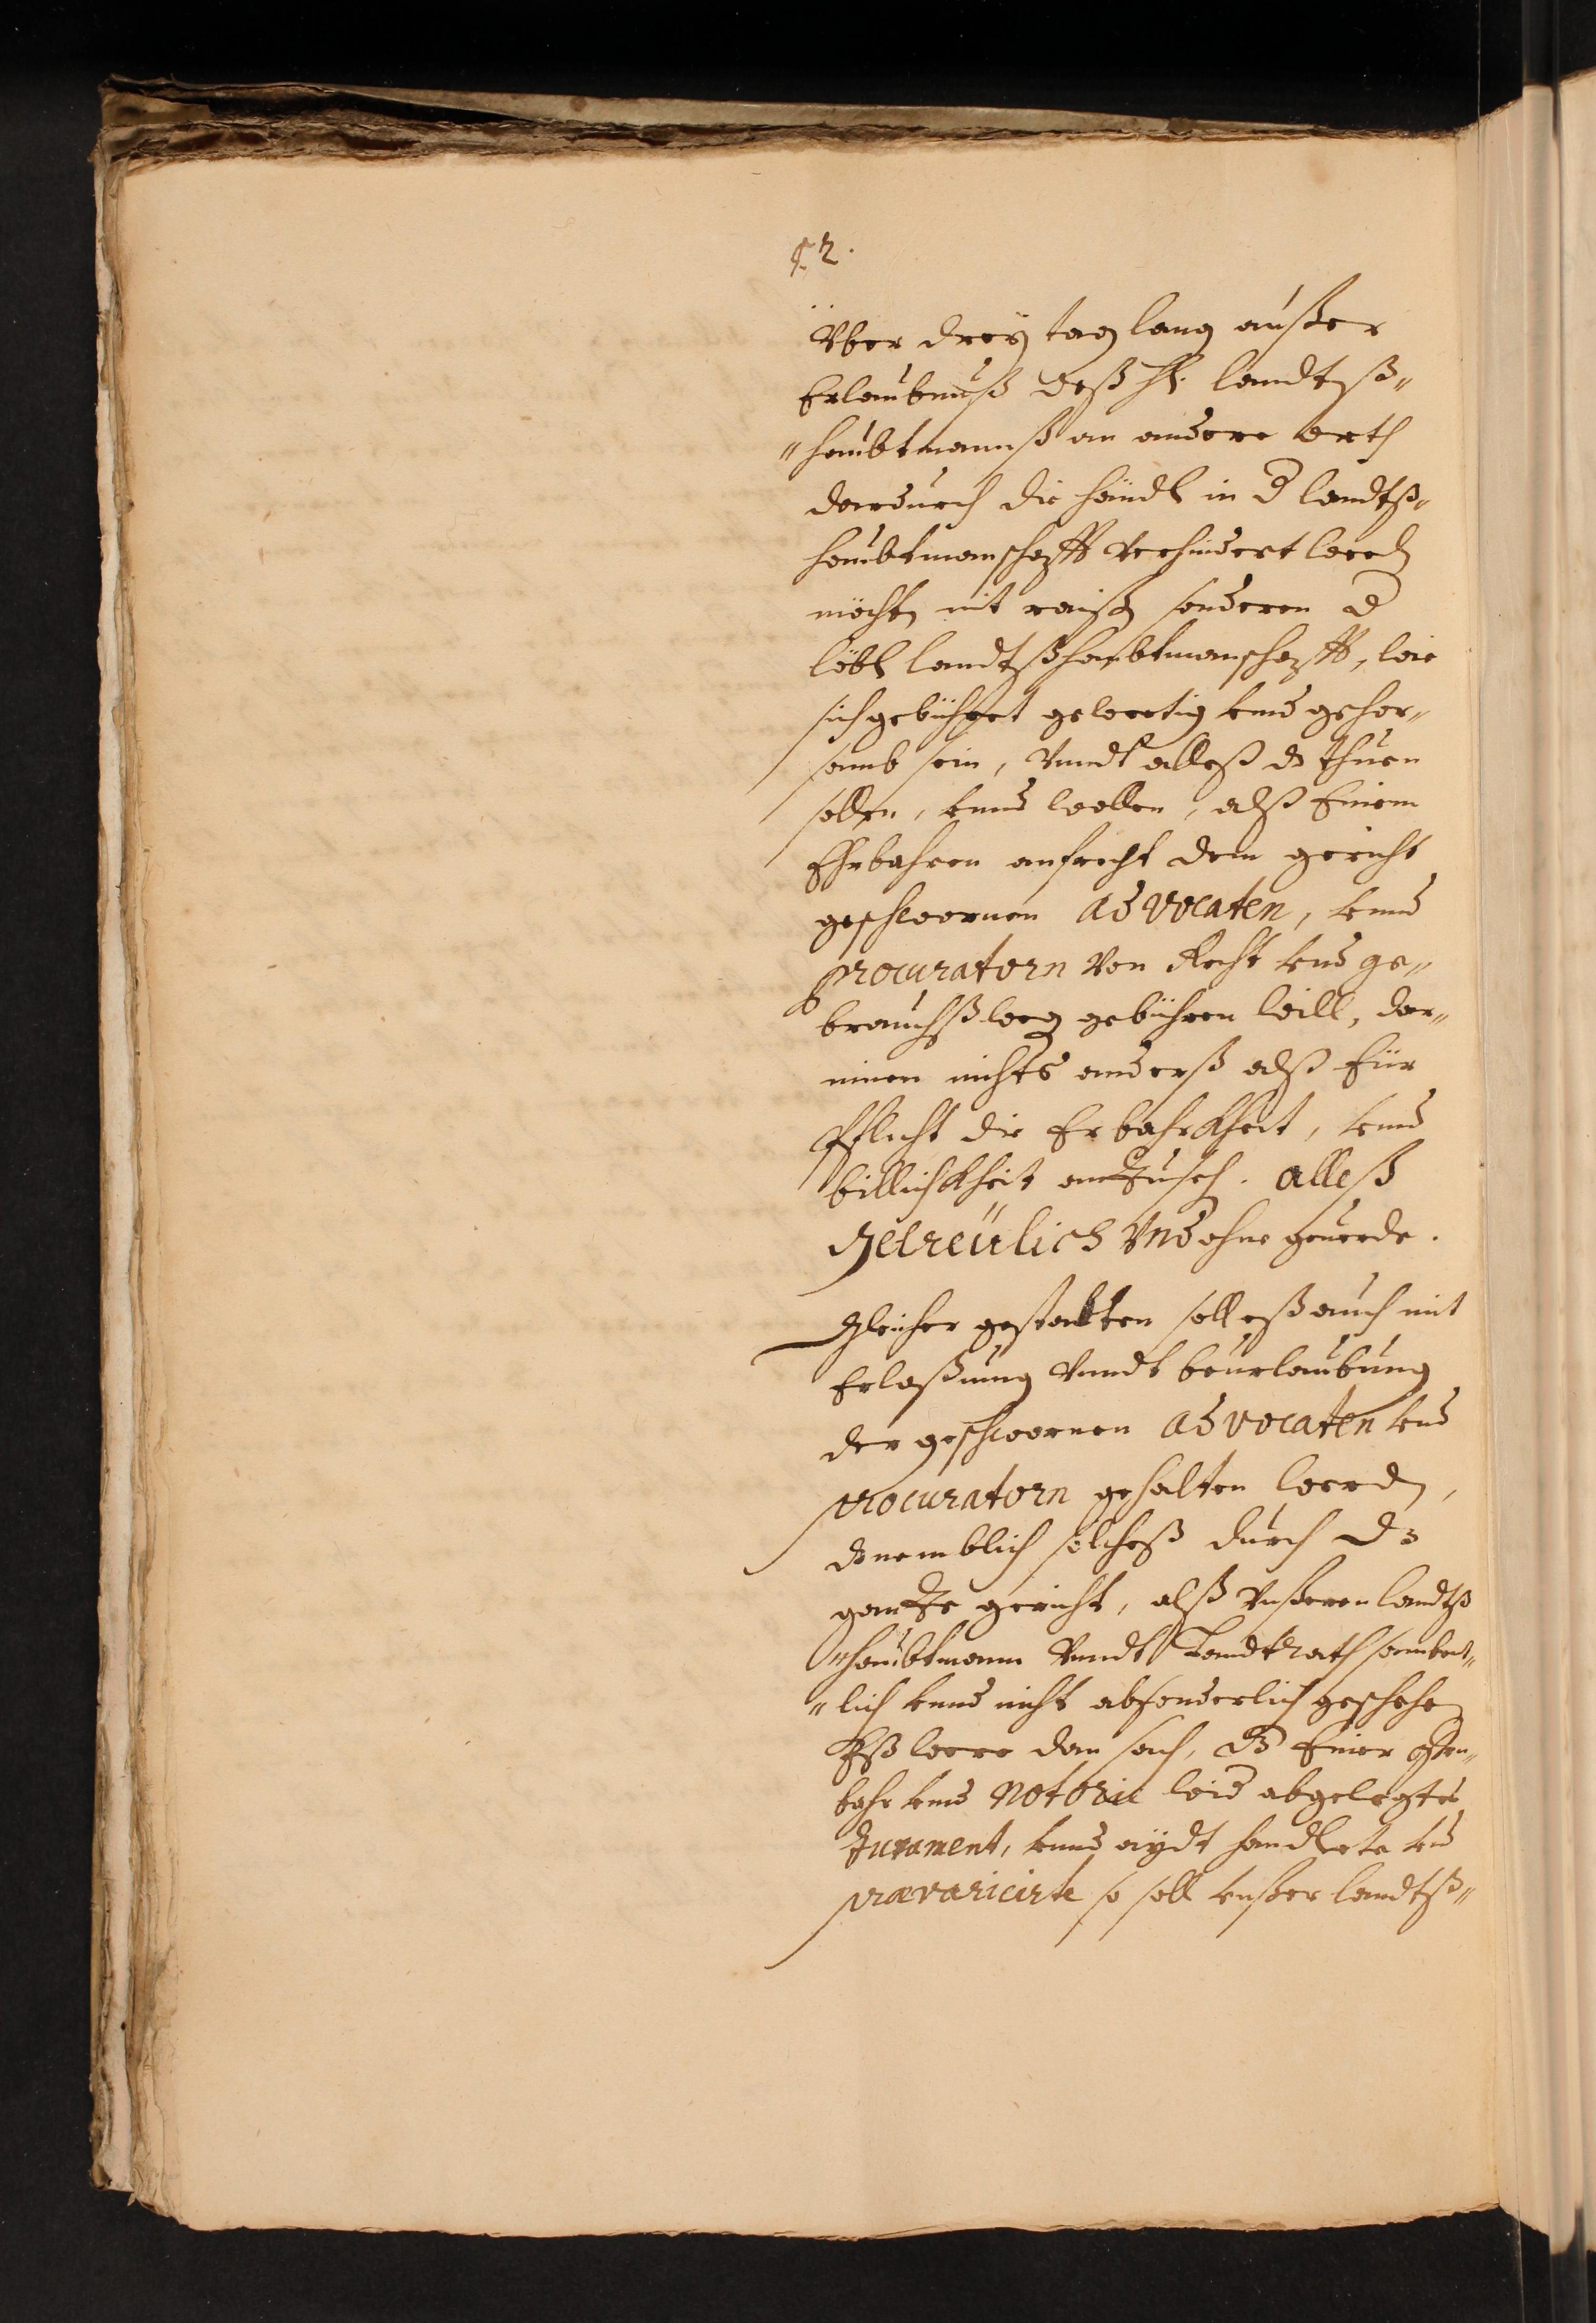 52.
Vber dreÿ tag lang außer
Erlaubnuß deß H. landtß„
„haubtmannß an andere orth
dardurch die händl in d landtß„
haubtmanschafft verhindert werdn
möchte nit raißn sonderen d
löbl landtßhaubtmanschafft, wie
sich gebührt gewertig vnnd gehor„
samb sein, Vnndt alleß dz thuen
sollen, vnnd wollen, alß Einem
Ehrbahren aufrecht dem gericht
geschwornen Advocaten, vnnd
procuratorn Von Recht vnd ge„
brauchßweg gebühren will, dar„
innen nichts anderß alß für
Pflicht die Erbahrkheit, vnnd
billichkheit anZusehn. alleß
Getreülich Vnd ohne geuerde.
Gleicher gestalten soll eß auch mit
Erlaßung Vnndt beurlaubung
der geschwornen Advocaten vnd
procuratorn gehalten werdn,
dz nemblich solcheß durch dz
gantze gericht, alß Vnßeren landtß
„haubtmann Vnndt Landträth sambent„
„lich vnnd nicht absonderlich geschehe
Eß were dan sach, dz Einer offen„
bahr vnnd notorie wid abgelegtes
Jurament, vnnd aÿdt handlete vnd
prævaricirte so soll vnßer landtß„